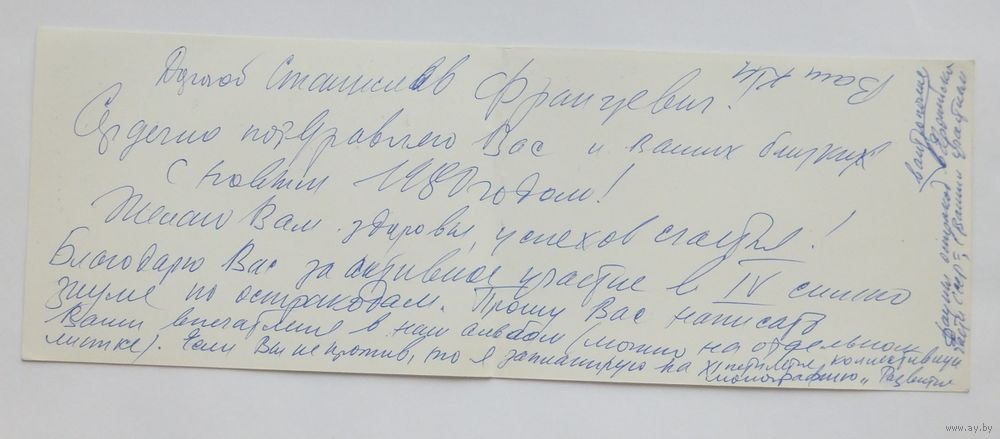 Дорогой Станислав Францевич!
Сердечно поздравляю Вас и Ваших близких
с новым 1980 годом!
Желаю Вам здоровья, успехов счастья!
Благодарю Вас за активное участие в IV симпо
зиуме по остракодам. Прошу Вас написать
Ваши впечатления в наш альбом (можно на отдельном
листке). Если Вы не против, то я запланирую на XI пятилетие коллективную
монографию „Развитие
Ваш
www.ay.by